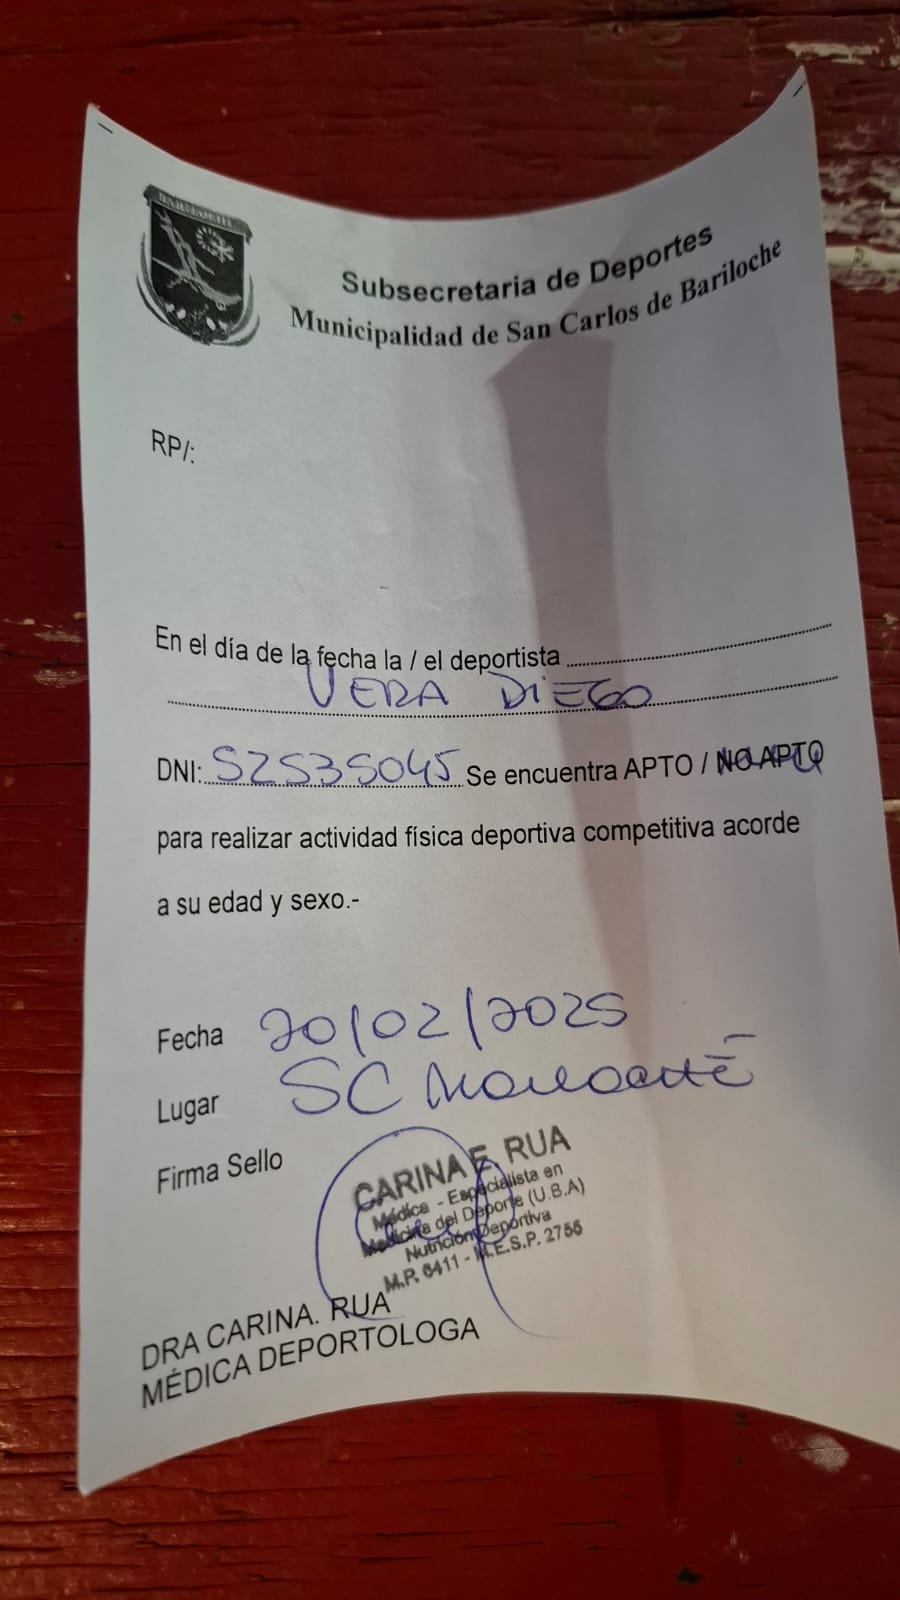 BARILOCHE
Subsecretaria de Deportes
Municipalidad de San Carlos de Bariloche
RP/:
En el día de la fecha la / el deportista
VERA DIEGO
DNI: 52535045 Se encuentra APTO / NO APTO
para realizar actividad física deportiva competitiva acorde
a su edad y sexo.-
Fecha 20/02/2025
Lugar SC Bariloche
Firma Sello
CARINA E. RUA
Médica - Especialista en
Medicina del Deporte (U.B.A)
Nutrición Deportiva
M.P. 6411 - M.E.S.P. 2755
DRA CARINA. RUA
MÉDICA DEPORTOLOGA